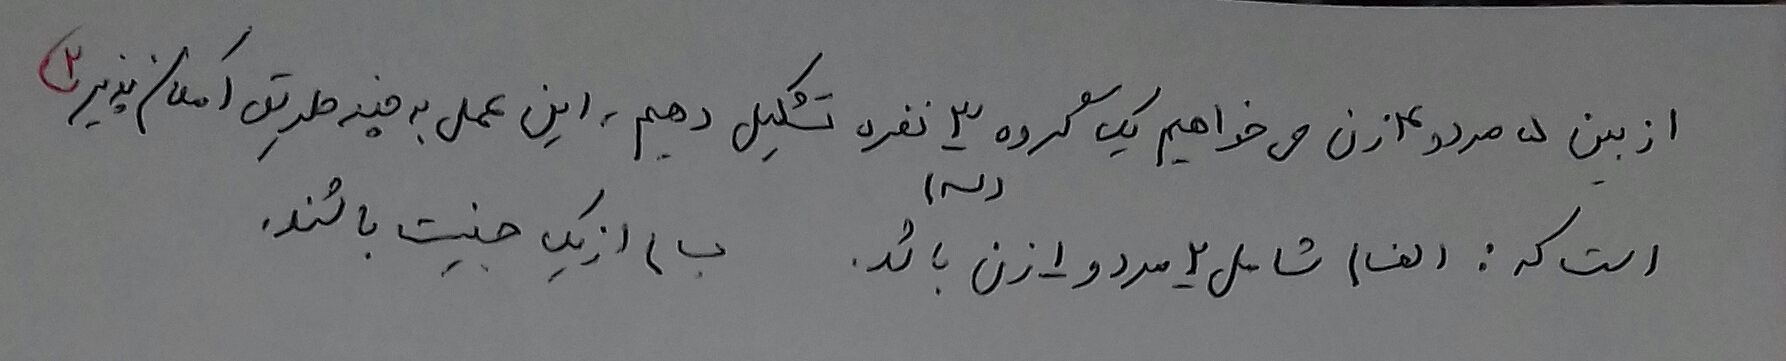 از بین ۵ مرد و ۴ زن می خواهیم یک گروه ۳ نفره تشکیل دهیم، این عمل به چند طریق امکان پذیر (۲
(سه)
است که : الف) شامل ۲ مرد و ۱ زن باشد. ب) از یک جنسیت باشند.